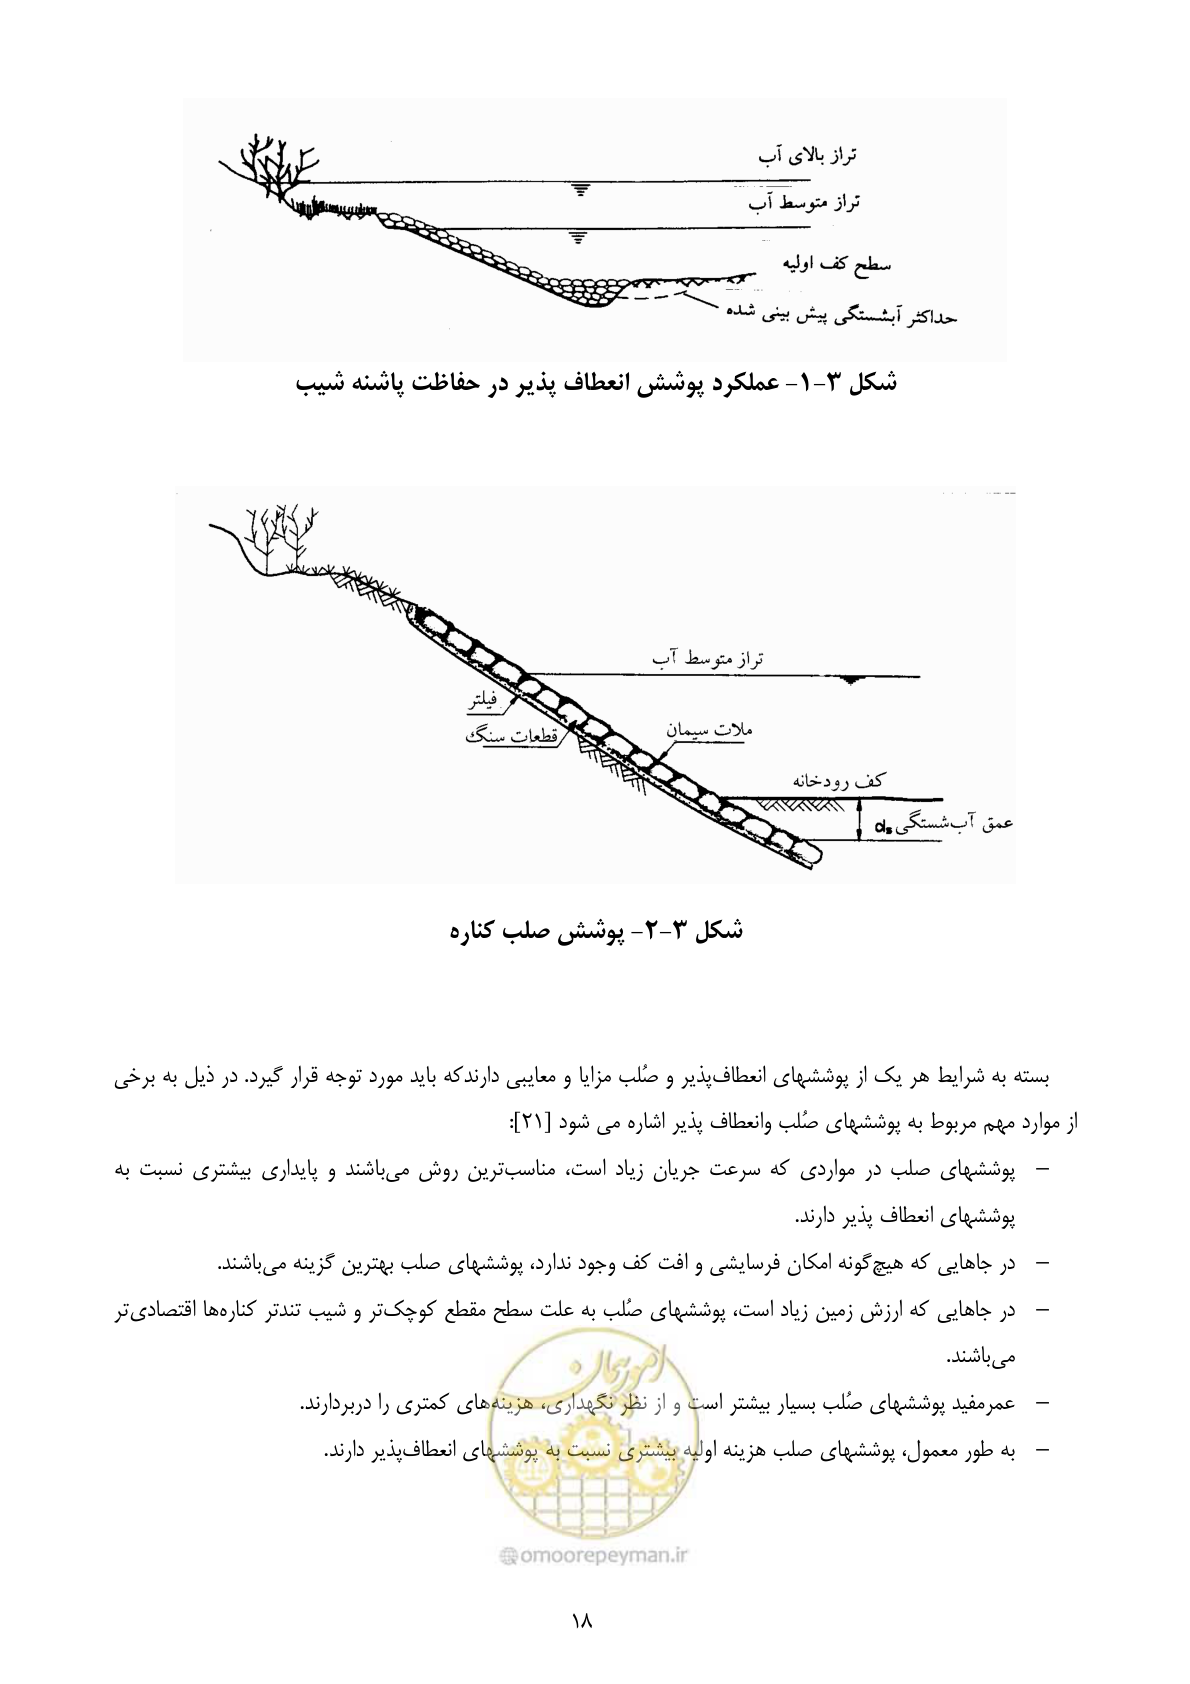 تراز بالای آب
تراز متوسط آب
سطح کف اولیه
حداکثر آبشستگی پیش بینی شده
شکل ۳-۱- عملکرد پوشش انعطاف پذیر در حفاظت پاشنه شیب
تراز متوسط آب
فیلتر
ملات سیمان
قطعات سنگ
کف رودخانه
عمق آب‌شستگی ds
شکل ۳-۲- پوشش صلب کناره
بسته به شرایط هر یک از پوششهای انعطاف‌پذیر و صُلب مزایا و معایبی دارندکه باید مورد توجه قرار گیرد. در ذیل به برخی
از موارد مهم مربوط به پوششهای صُلب وانعطاف پذیر اشاره می شود [۲۱]:
– پوششهای صلب در مواردی که سرعت جریان زیاد است، مناسب‌ترین روش می‌باشند و پایداری بیشتری نسبت به
پوششهای انعطاف پذیر دارند.
– در جاهایی که هیچ‌گونه امکان فرسایشی و افت کف وجود ندارد، پوششهای صلب بهترین گزینه می‌باشند.
– در جاهایی که ارزش زمین زیاد است، پوششهای صُلب به علت سطح مقطع کوچک‌تر و شیب تندتر کناره‌ها اقتصادی‌تر
می‌باشند.
– عمرمفید پوششهای صُلب بسیار بیشتر است و از نظر نگهداری، هزینه‌های کمتری را دربردارند.
– به طور معمول، پوششهای صلب هزینه اولیه بیشتری نسبت به پوششهای انعطاف‌پذیر دارند.
امور پیمان
@omoorepeyman.ir
۱۸